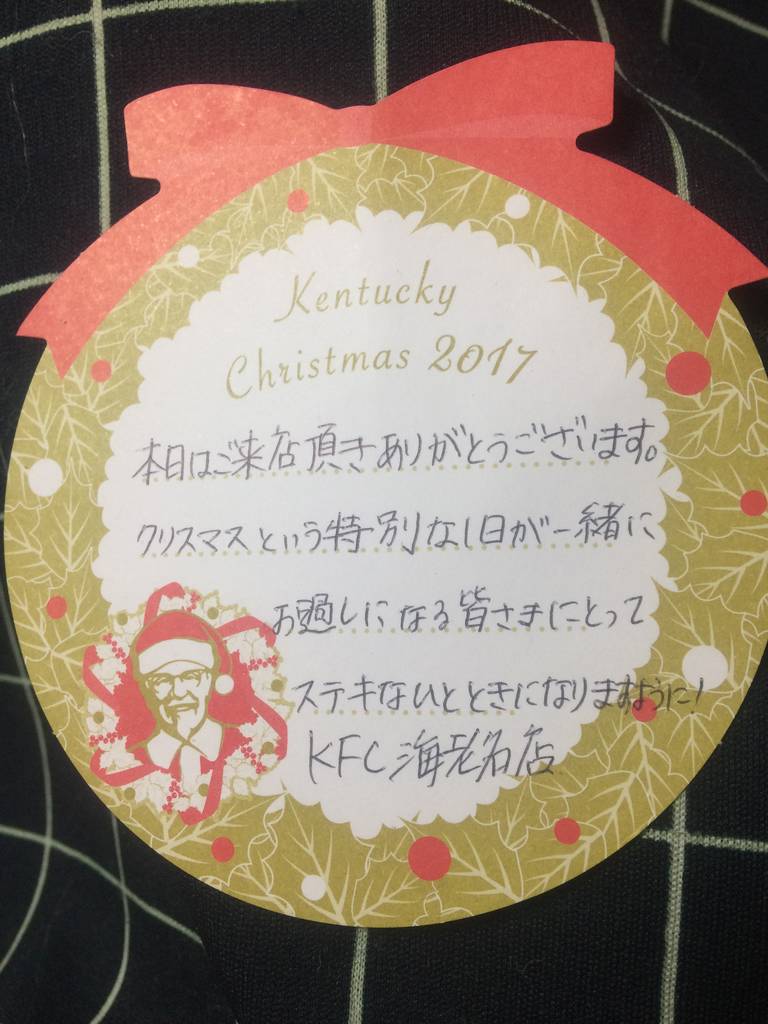 Kentucky
Christmas 2017
本日はご来店頂きありがとうございます。
クリスマスという特別な1日が一緒に
お過しになる皆さまにとって
ステキなひとときになりますように!
KFC 海老名店